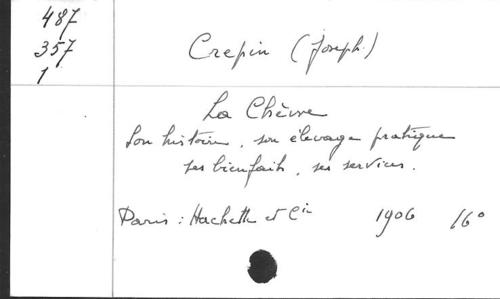 487
357
1
Crepin (Joseph.)
La Chèvre
Son histoire, son élevage pratique
ses bienfaits, ses services.
Paris : Hachette et Cie 1906 16°